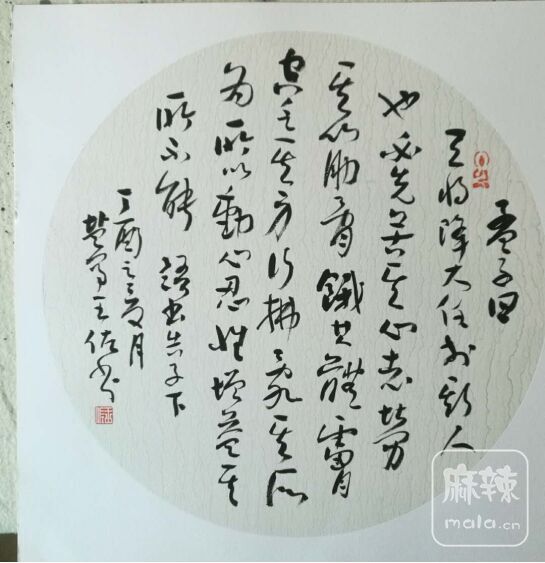 孟子曰
天将降大任於斯人
也必先苦其心志勞
其筋骨餓其體膚
空乏其身行拂亂其所
為所以動心忍性增益其
所不能 語出告子下
丁酉之夏月
王佐书
麻辣
mala.cn